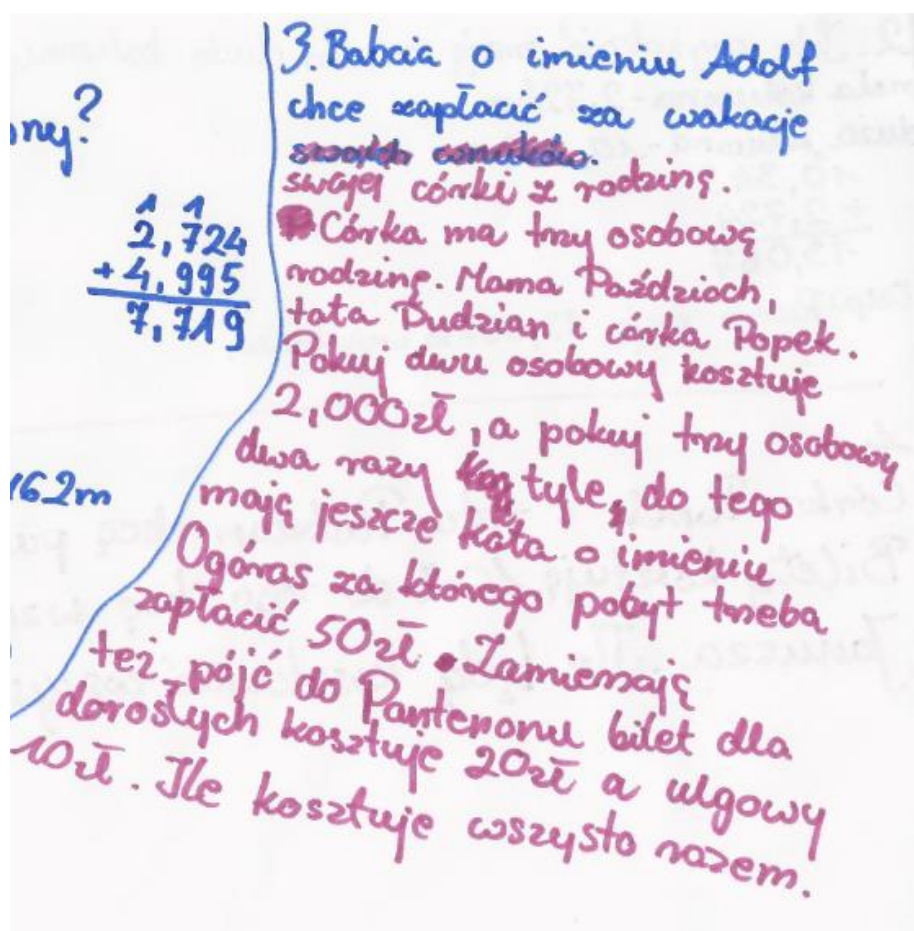 ny?
1 1
2,724
+ 4,995
7,719
162m
3. Babcia o imieniu Adolf
chce zapłacić za wakacje
swojej córki z rodziną.
Córka ma trzy osobową
rodzinę. Mama Paździoch,
tata Dudzian i córka Popek.
Pokuj dwu osobowy kosztuje
2,000zł, a pokuj trzy osobowy
dwa razy tyle, do tego
mają jeszcze kota o imieniu
Ogóras za którego pobyt trzeba
zapłacić 50zł. Zamierzają
też pójć do Panteronu bilet dla
dorosłych kosztuje 20zł a ulgowy
10zł. Ile kosztuje wszysto razem.